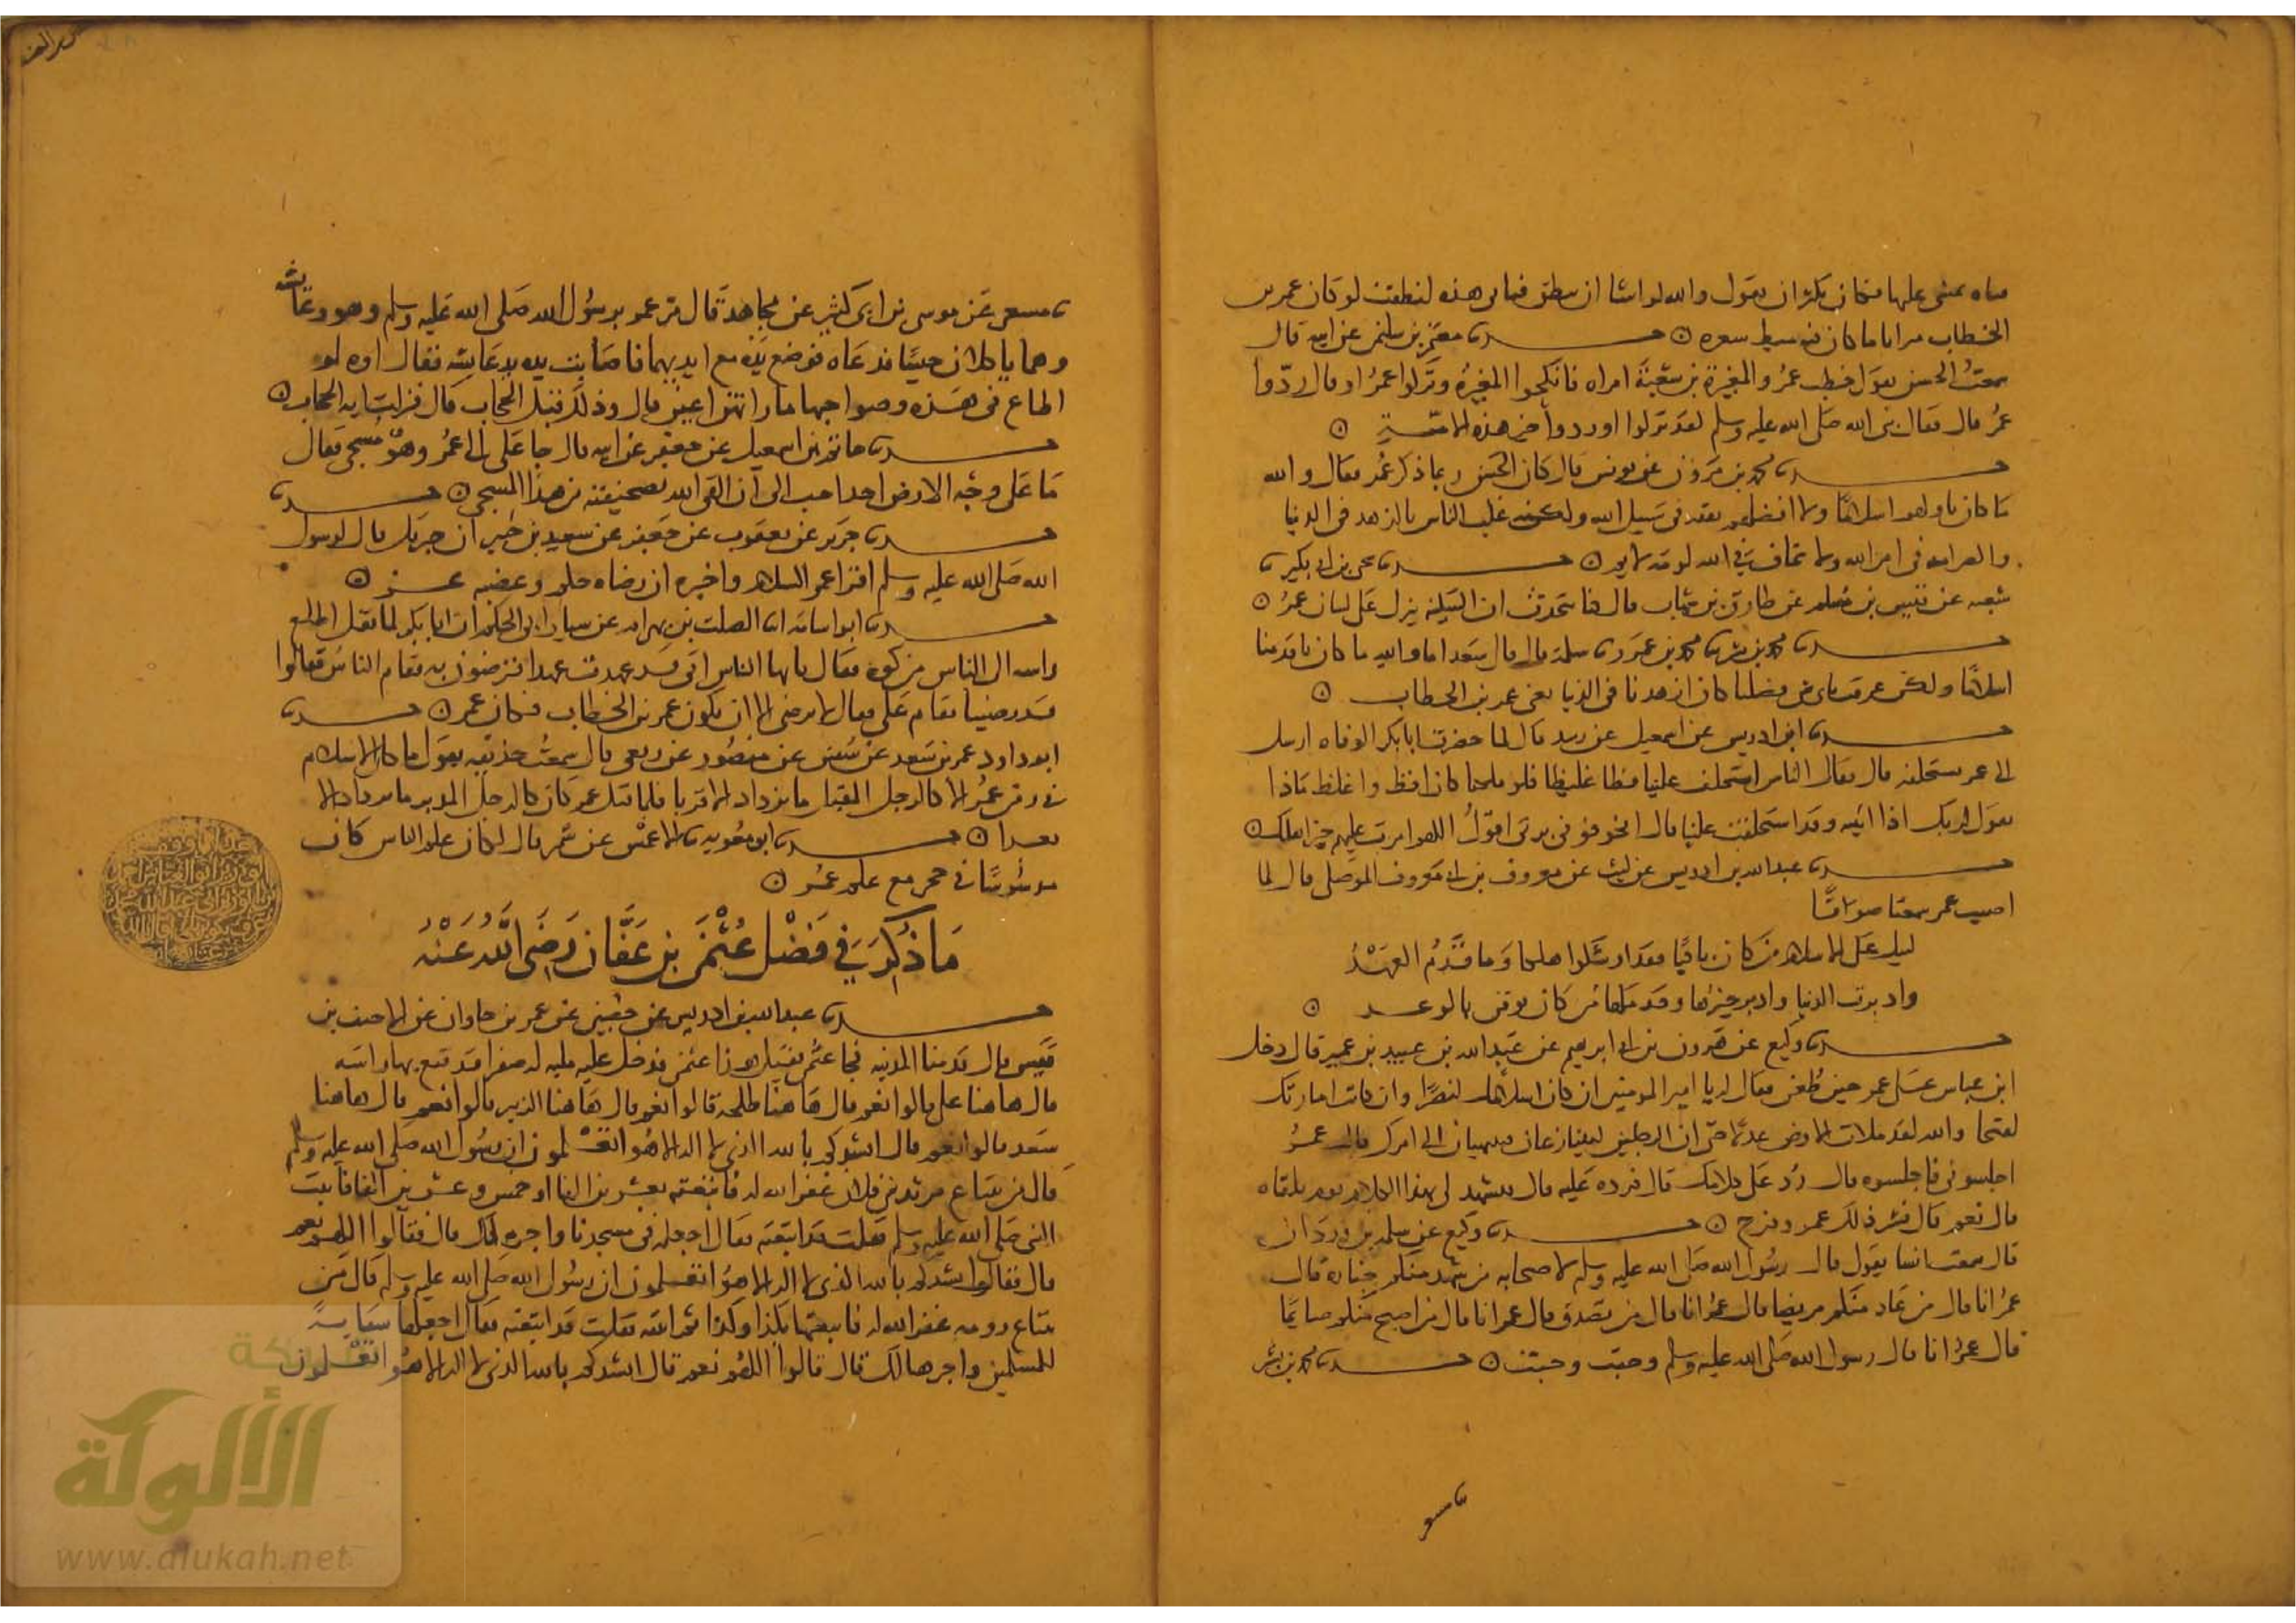 الخطاب ميزانا ما كان فيه ميط شعره ۞ حدثنا معتمر بن سليمن عن ابيه قال
سمعت الحسن يقول خطب عمر والمغيرة بن شعبة امراه فانكحوا المغيرة وتركوا عمر او قال ردوا
عمر قال فقال نبي الله صلى الله عليه وسلم لقد تركوا او ردوا خير هذه الامة ۞
حدثنا محمد بن مروان عن يونس قال كان الحسن ربما ذكر عمر فقال والله
ما كان باولهم اسلاما ولا افضلهم نفقة في سبيل الله ولكنه غلب الناس بالزهد في الدنيا
والصرامة في امر الله ولا يخاف في الله لومة لايم ۞ حدثنا يحيى بن ابي بكير نا
شعبه عن قيس بن مسلم عن طارق بن شهاب قال كنا نتحدث ان السكينة تنزل على لسان عمر ۞
حدثنا محمد بن بشر نا محمد بن عمرو نا سلمة قال قال سعد اما والله ما كان باقدمنا
اسلاما ولكن عرفت باي شي فضلنا كان ازهدنا في الدنيا يعني عمر بن الخطاب ۞
حدثنا ابن ادريس عن اسمعيل عن زبيد قال لما حضرت ابا بكر الوفاه ارسل
الى عمر يستخلفه قال فقال الناس استخلف علينا فظا غليظا فلو ملكنا كان افظ واغلظ ماذا
تقول لربك اذا اتيته وقد استخلفت علينا قال اتخوفوني بربي اقول اللهم امرت عليهم خير اهلك ۞
حدثنا عبدالله بن ادريس عن ليث عن معروف بن ابي معروف الموصلي قال لما
اصيب عمر سمعنا صوتا
ليبك على الاسلام من كان باكيا فقد اوشكوا هلكا وما قدم العهد
وادبرت الدنيا وادبر خيرها وقد ملها من كان يوقن بالوعد ۞
حدثنا وكيع عن هرون بن ابي ابرهيم عن عبدالله بن عبيد بن عمير قال دخل
ابن عباس على عمر حين طعن فقال له يا امير المومنين ان كان اسلامك لنصرا وان كانت امارتك
لفتحا والله لقد ملات الارض عدلا حتى ان الرجلين ليتنازعان فينتهيان الى امرك قال عمر
اجلسوني فاجلسوه قال رد علي كلامك قال فرده عليه قال فتشهد لي بهذا الكلام يوم تلقاه
قال نعم قال فسر ذلك عمر وفرح ۞ حدثنا وكيع عن سلمه بن وردان
قال سمعت انسا يقول قال رسول الله صلى الله عليه وسلم لاصحابه من شهد منكم جنازه قال
عمر انا قال من عاد منكم مريضا قال عمر انا قال من تصدق قال عمر انا قال من اصبح منكم صايما
قال عمر انا قال رسول الله صلى الله عليه وسلم وجبت وجبت ۞ حدثنا محمد بن بشر
نا مسعر
نا مسعر عن موسى بن ابي كثير عن مجاهد قال مر عمر برسول الله صلى الله عليه وسلم وهو وعائشه
وهما ياكلان حيسا فدعاه فوضع يده مع ايديهما فاصابت يده يد عايشه فقال اوه لو
اطاع في هذه وصواحبها ما راتهن اعين قال وذلك قبل الحجاب قال فنزلت ايه الحجاب ۞
حدثنا حاتم بن اسمعيل عن جعفر عن ابيه قال جا علي الى عمر وهو مسجى فقال
ما على وجه الارض احد احب الى ان القى الله بصحيفته من هذا المسجى ۞ حدثنا
حدثنا جرير عن يعقوب عن جعفر عن سعيد بن جبير ان جبريل قال لرسول
الله صلى الله عليه وسلم اقرا عمر السلام واخبره ان رضاه حكم وغضبه عز ۞
حدثنا ابو اسامه نا الصلت بن بهرام عن سيار ابي الحكم ان ابا بكر لما ثقل اطلع
راسه الى الناس من كوه فقال يا ايها الناس اني قد عهدت عهدا افترضون به فقام الناس فقالوا
قد رضينا فقام علي فقال لا نرضى الا ان يكون عمر بن الخطاب فكان عمر ۞ حدثنا
ابو داود عمر بن سعد عن سفين عن منصور عن ربعي قال سمعت حذيفه يقول ما كان الاسلام
في زمن عمر الا كالرجل المقبل ما يزداد الا قربا فلما قتل عمر كان كالرجل المدبر ما يزداد الا
بعدا ۞ حدثنا ابو معويه نا الاعمش عن شمر قال لكان علم الناس كان
مدسوسا في جحر مع علم عمر ۞
ما ذكر في فضل عثمن بن عفان رضي الله عنه
حدثنا عبدالله بن ادريس عن حصين عن عمر بن جاوان عن الاحنف بن
قيس قال قدمنا المدينه فجا عثمن فقيل هذا عثمن فدخل عليه مليه له صفرا قد قنع بها راسه
قال هاهنا علي قالوا نعم قال هاهنا طلحه قالوا نعم قال هاهنا الزبير قالوا نعم قال هاهنا
سعد قالوا نعم قال انشدكم بالله الذي لا اله الا هو اتعلمون ان رسول الله صلى الله عليه وسلم
قال من يبتاع مربد بني فلان غفر الله له فابتعته بعشرين الفا او خمسة وعشرين الفا فاتيت
النبي صلى الله عليه وسلم فقلت قد ابتعته فقال اجعله في مسجدنا واجره لك قال فقالوا اللهم نعم
قال فقال انشدكم بالله الذي لا اله الا هو اتعلمون ان رسول الله صلى الله عليه وسلم قال من
يبتاع رومه غفر الله له فابتعتها بكذا وكذا ثم اتيته فقلت قد ابتعته فقال اجعلها سقاية
للمسلمين واجرها لك قال قالوا اللهم نعم قال انشدكم بالله الذي لا اله الا هو اتعلمون
شبكة
الألوكة
www.alukah.net